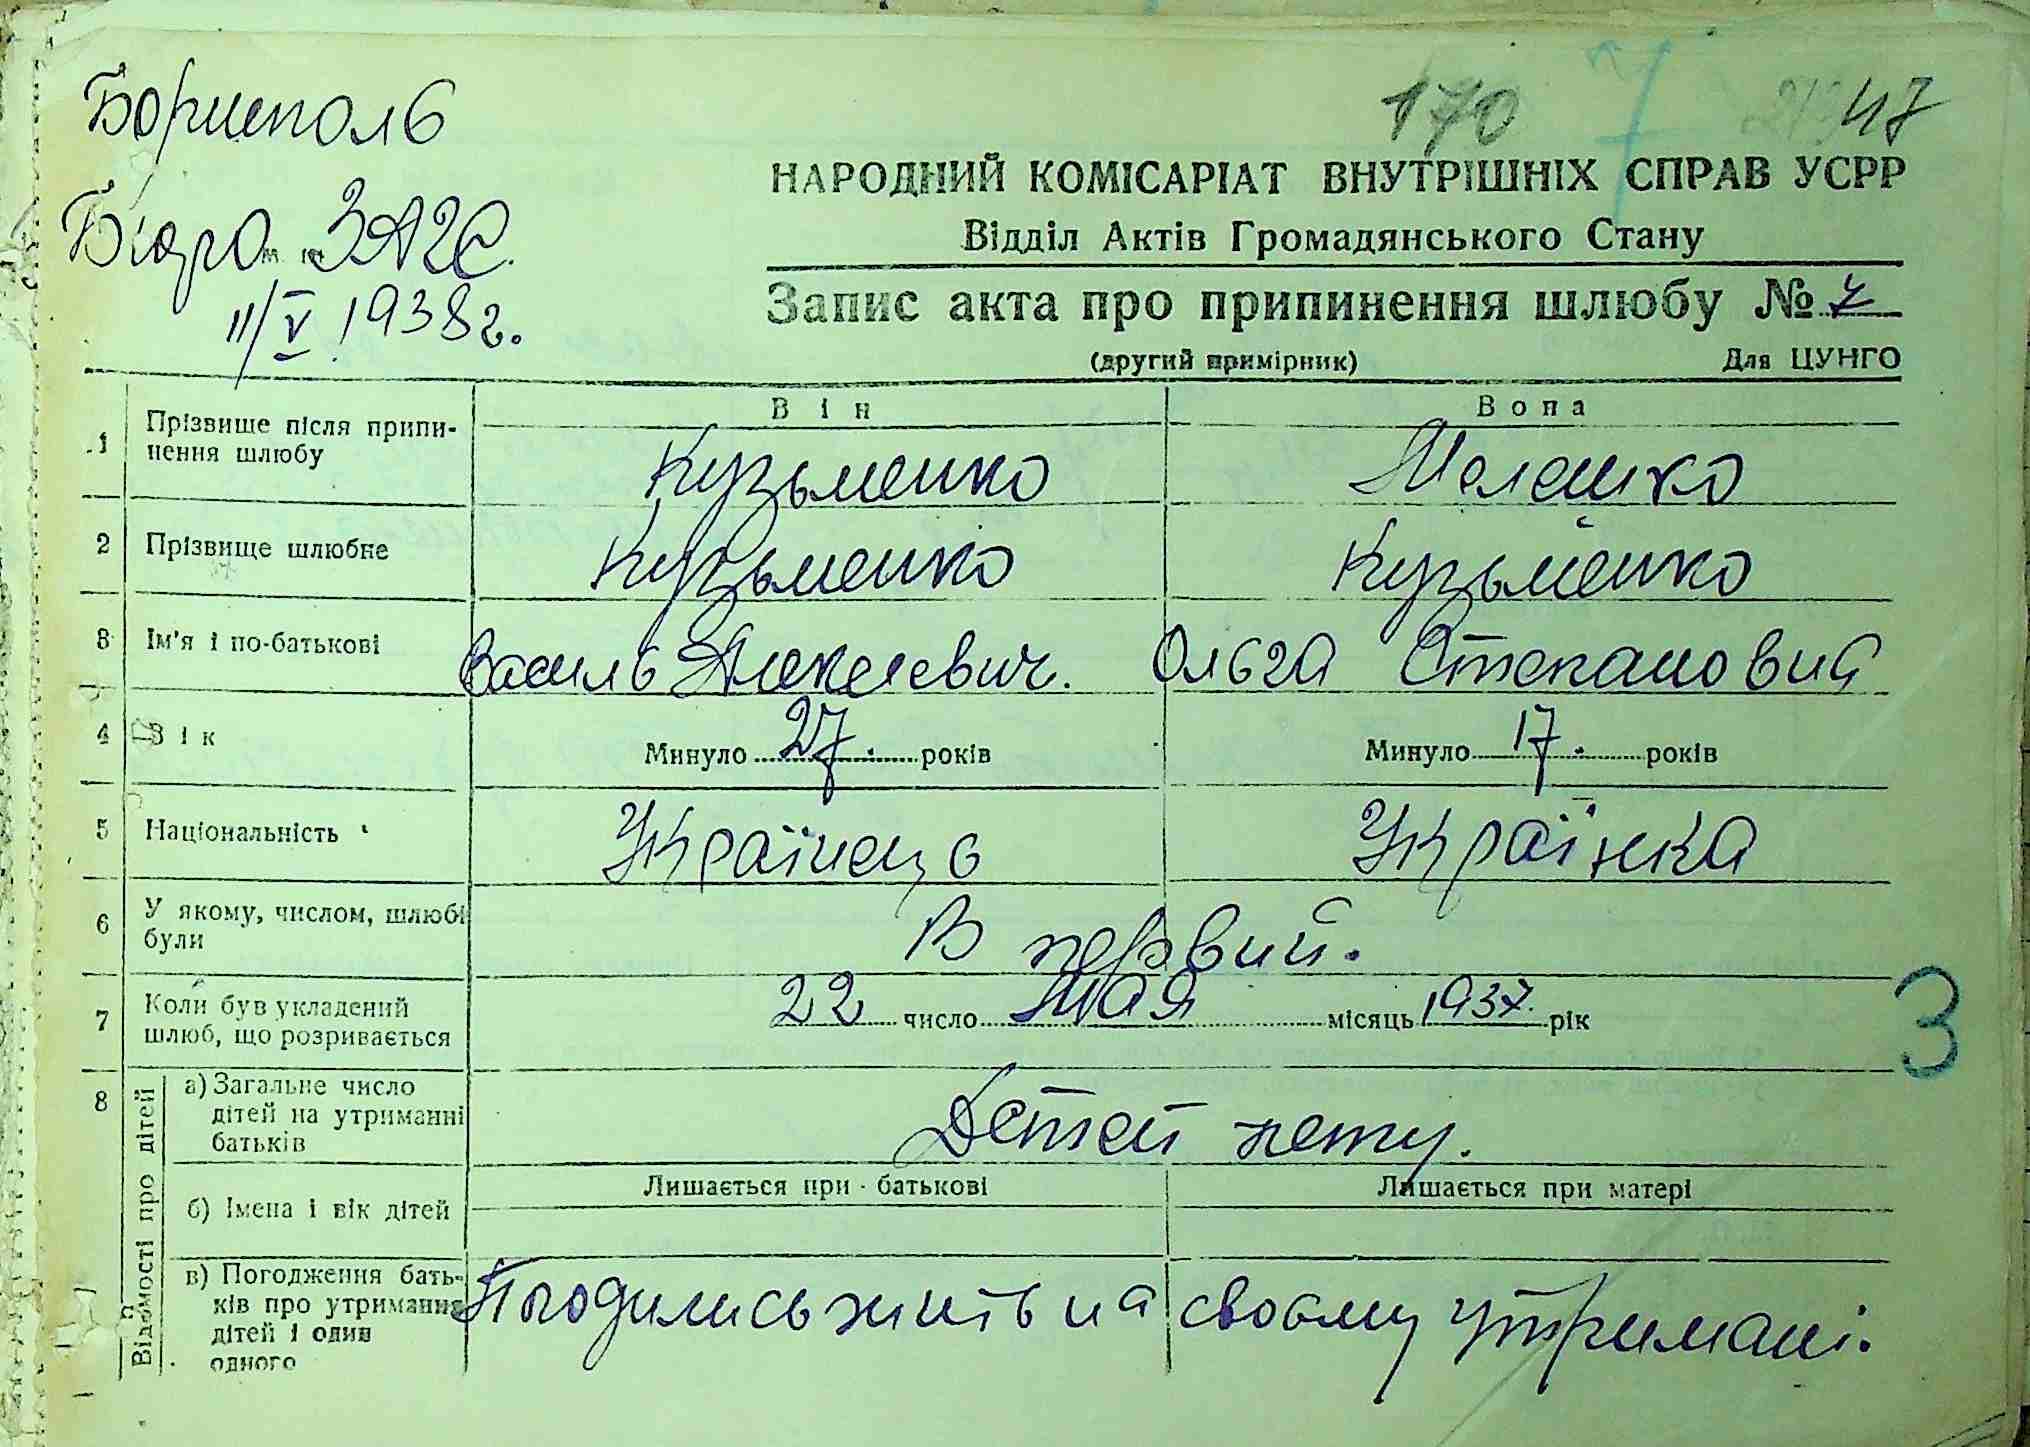 Бориполь
170
47
Бюро ЗАГС.
11/V 1938г.
НАРОДНИЙ КОМІСАРІАТ ВНУТРІШНІХ СПРАВ УСРР
Відділ Актів Громадянського Стану
Запис акта про припинення шлюбу № 7
(другий примірник) Для ЦУНГО
Він Вона
1 Прізвище після припи-
нення шлюбу Кузьменко Мелешко
2 Прізвище шлюбне Кузьменко Кузьменко
3 Ім'я і по-батькові Василь Алексеевич. Ольга Степановна
4 Вік Минуло 27. років Минуло 17. років
5 Національність Українець Українка
6 У якому, числом, шлюбі
були В первий.
7 Коли був укладений
шлюб, що розривається 22 число мая місяць 1937. рік
3
8 Відомості про дітей
а) Загальне число
дітей на утриманні
батьків Детей нету.
б) Імена і вік дітей Лишається при батькові Лишається при матері
в) Погодження бать-
ків про утримання
дітей і один
одного Погодились жить на своєму утримані.